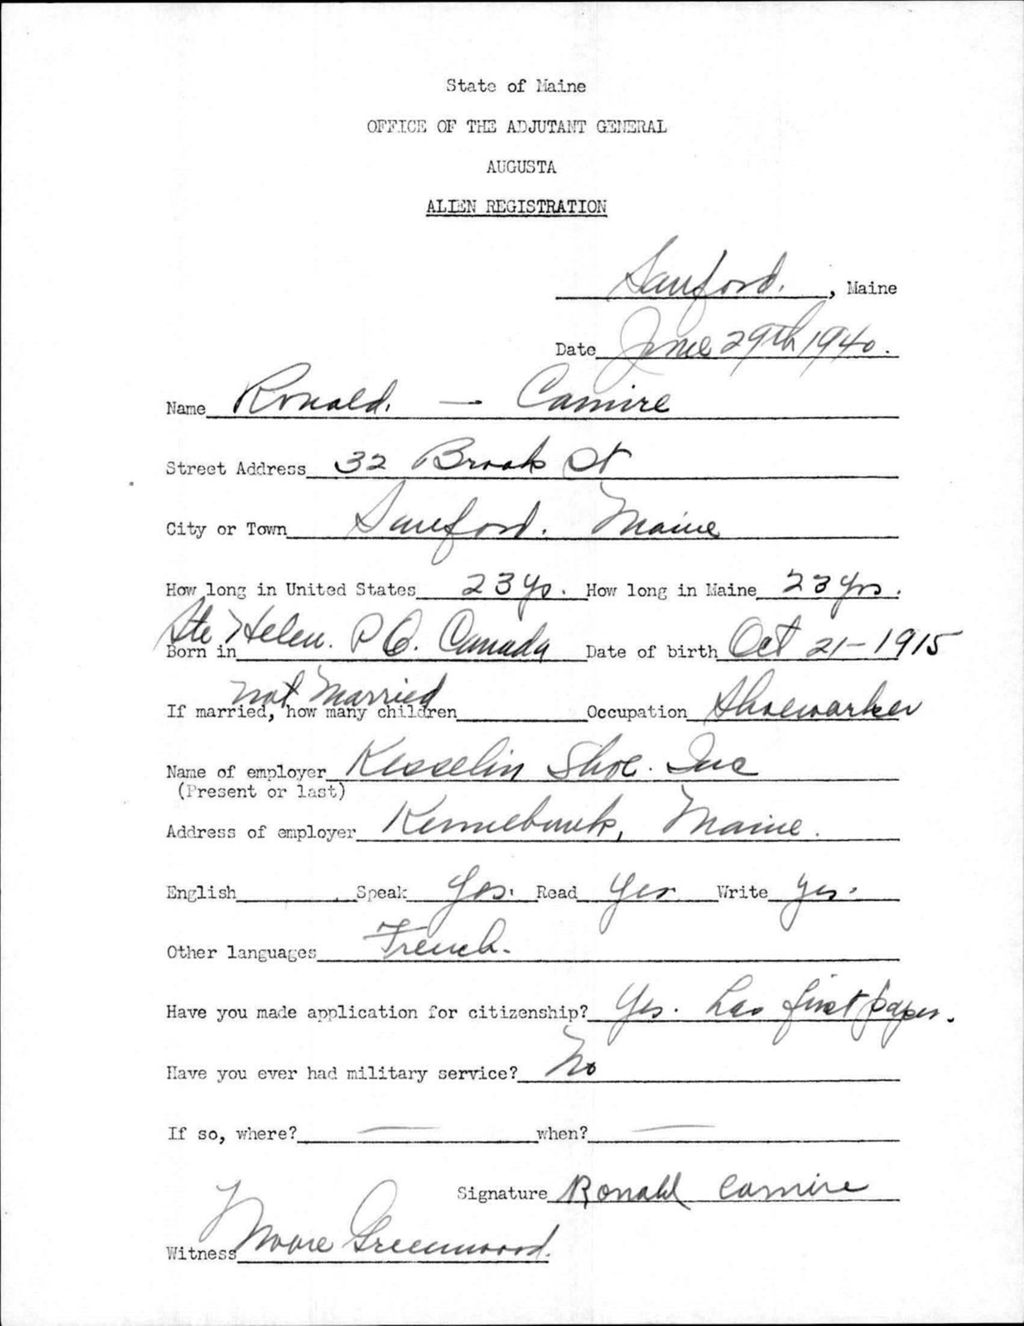 State of Maine
OFFICE OF THE ADJUTANT GENERAL
AUGUSTA
ALIEN REGISTRATION
Sanford. , Maine
Date June 29th 1940.
Name Ronald. — Camire
Street Address 32 Brook St
City or Town Sanford. Maine
How long in United States 23 yrs. How long in Maine 23 yrs.
Born in Ste Helen. P Q. Canada Date of birth Oct 21-1915
not married
If married, how many children Occupation Shoeworker
Name of employer Kesselin Shoe. Inc
(Present or last)
Address of employer Kennebunk, Maine.
English Speak Yes. Read Yes Write Yes.
Other languages French.
Have you made application for citizenship? Yes. has first paper.
Have you ever had military service? No
If so, where? — when? —
Signature Ronald Camire
Witness Moore Greenwood.